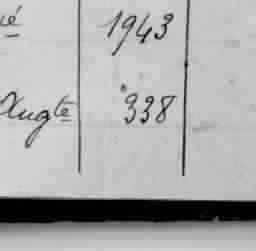 ié 1943
Augte 338